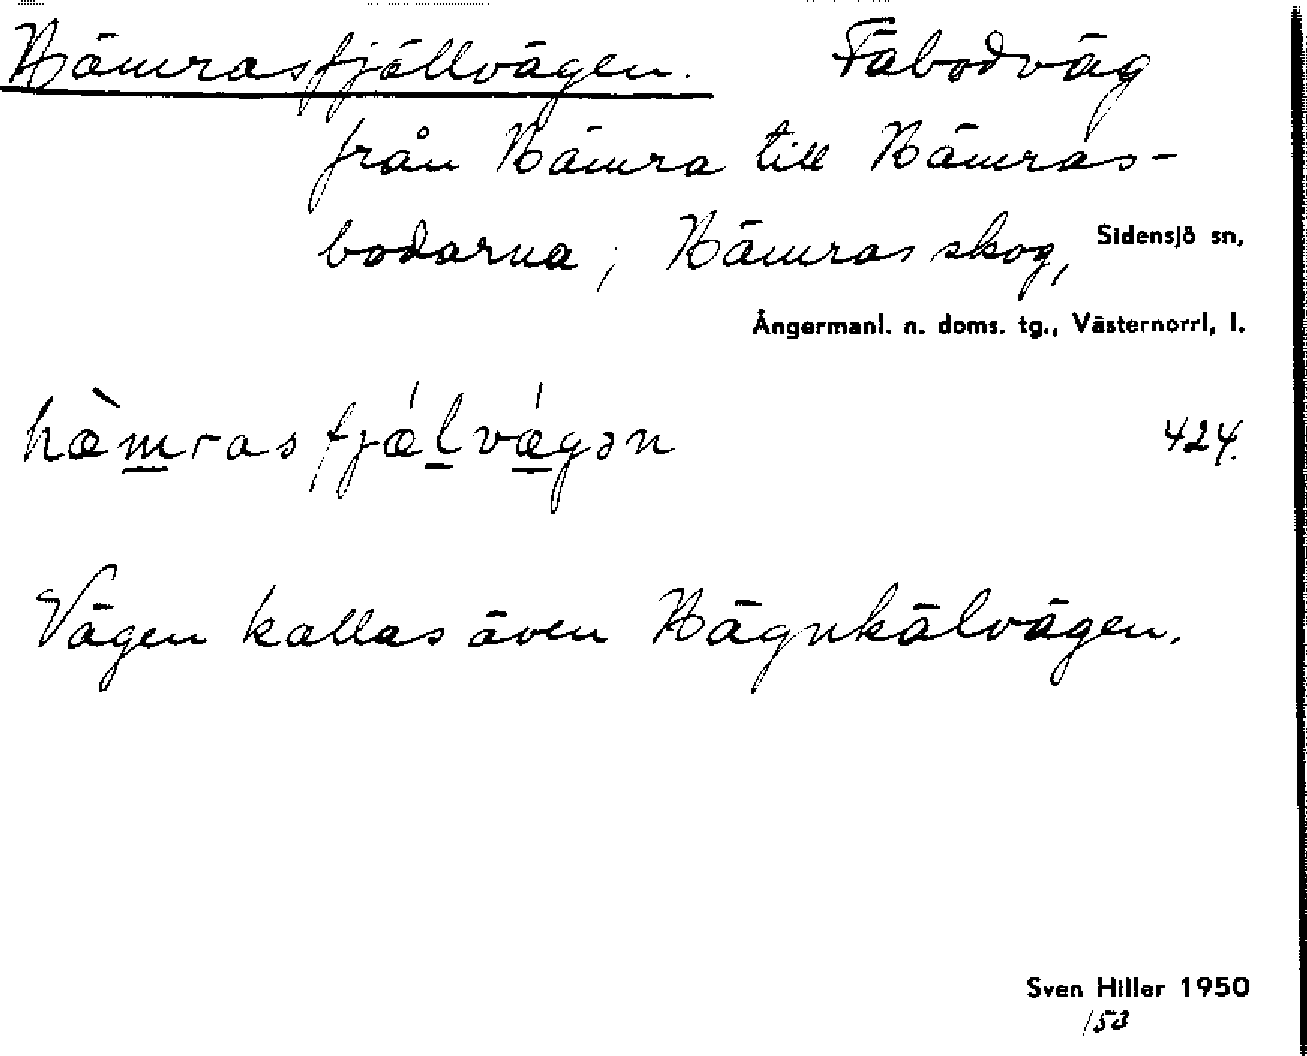 Hämrasfjällvägen. Fäbodväg
från Hämra till Hämras-
bodarna; Hämras skog, Sidensjö sn,
Ångermanl. n. doms. tg., Västernorrl, l.
hæ̀m̲rasfjǽl̲vǽ̲gən 424.
Vägen kallas även Hägnkälvägen.
Sven Hiller 1950
153